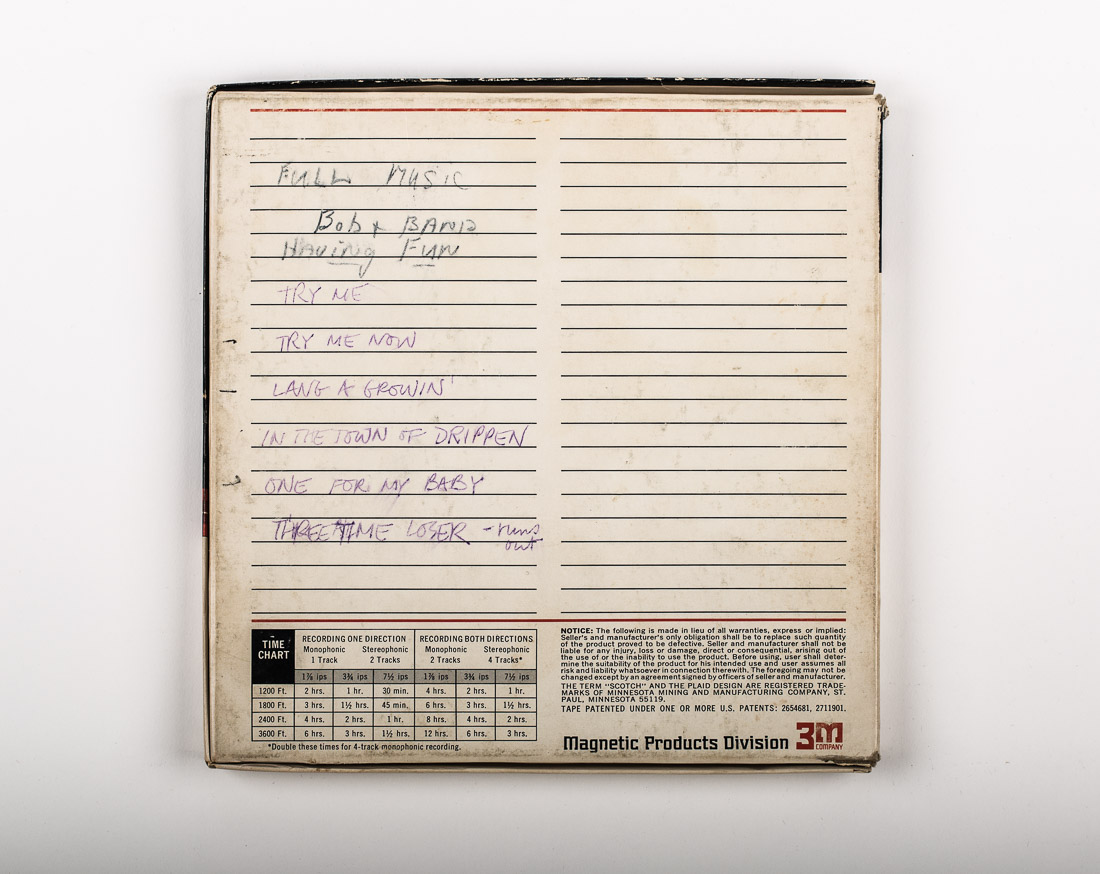 FULL MUSIC
Bob + BAND
Having Fun
TRY ME
TRY ME NOW
LANG A GROWIN'
IN THE TOWN OF DRIPPEN
ONE FOR MY BABY
THREE TIME LOSER - runs
out
TIME CHART
RECORDING ONE DIRECTION RECORDING BOTH DIRECTIONS
Monophonic Stereophonic Monophonic Stereophonic
1 Track 2 Tracks 2 Tracks 4 Tracks*
1⅞ ips 3¾ ips 7½ ips 1⅞ ips 3¾ ips 7½ ips
1200 Ft. 2 hrs. 1 hr. 30 min. 4 hrs. 2 hrs. 1 hr.
1800 Ft. 3 hrs. 1½ hrs. 45 min. 6 hrs. 3 hrs. 1½ hrs.
2400 Ft. 4 hrs. 2 hrs. 1 hr. 8 hrs. 4 hrs. 2 hrs.
3600 Ft. 6 hrs. 3 hrs. 1½ hrs. 12 hrs. 6 hrs. 3 hrs.
*Double these times for 4-track monophonic recording.
NOTICE: The following is made in lieu of all warranties, express or implied:
Seller's and manufacturer's only obligation shall be to replace such quantity
of the product proved to be defective. Seller and manufacturer shall not be
liable for any injury, loss or damage, direct or consequential, arising out of
the use of or the inability to use the product. Before using, user shall deter-
mine the suitability of the product for his intended use and user assumes all
risk and liability whatsoever in connection therewith. The foregoing may not be
changed except by an agreement signed by officers of seller and manufacturer.
THE TERM "SCOTCH" AND THE PLAID DESIGN ARE REGISTERED TRADE-
MARKS OF MINNESOTA MINING AND MANUFACTURING COMPANY, ST.
PAUL, MINNESOTA 55119.
TAPE PATENTED UNDER ONE OR MORE U.S. PATENTS: 2654681, 2711901.
Magnetic Products Division 3M
COMPANY